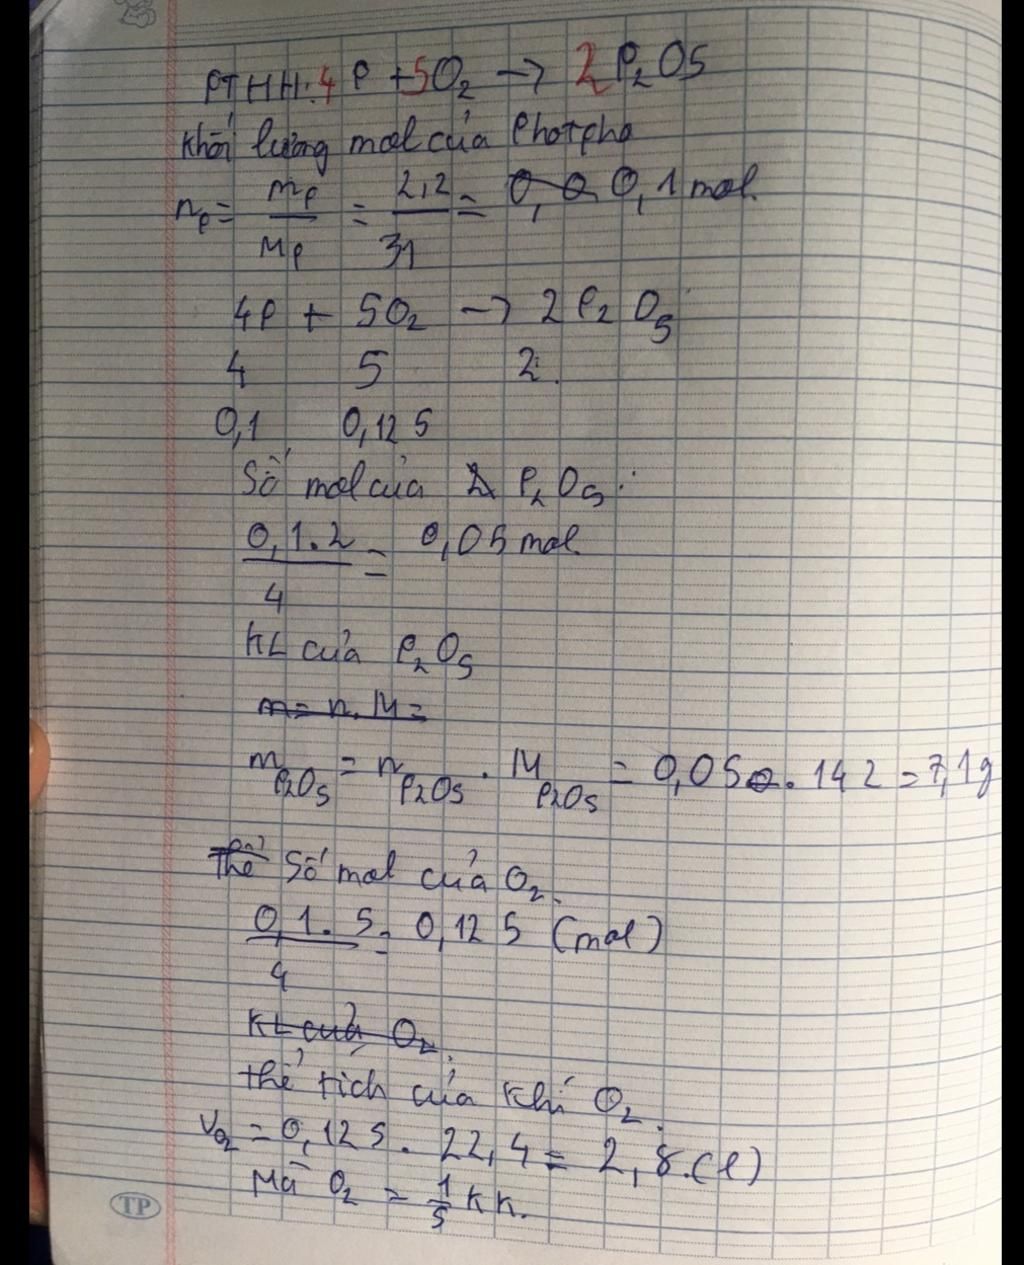 PTHH: 4P + 5O₂ → 2P₂O5
Khối lượng mol của Photpho
nP = mP/MP = 2,2/31 = 0,1 mol.
4P + 5O₂ → 2P₂O5
4 5 2.
0,1 0,125
Số mol của P₂O5:
0,1.2/4 = 0,05 mol
KL của P₂O5
m = n.M =
mP2O5 = nP2O5 . MP2O5 = 0,05 . 142 = 7,1g
Thể Số mol của O₂.
0,1.5/4 = 0,125 (mol)
KL của O₂.
thể tích của khí O₂.
VO2 = 0,125 . 22,4 = 2,8 (l)
Mà O₂ = 1/5 KK.
TP